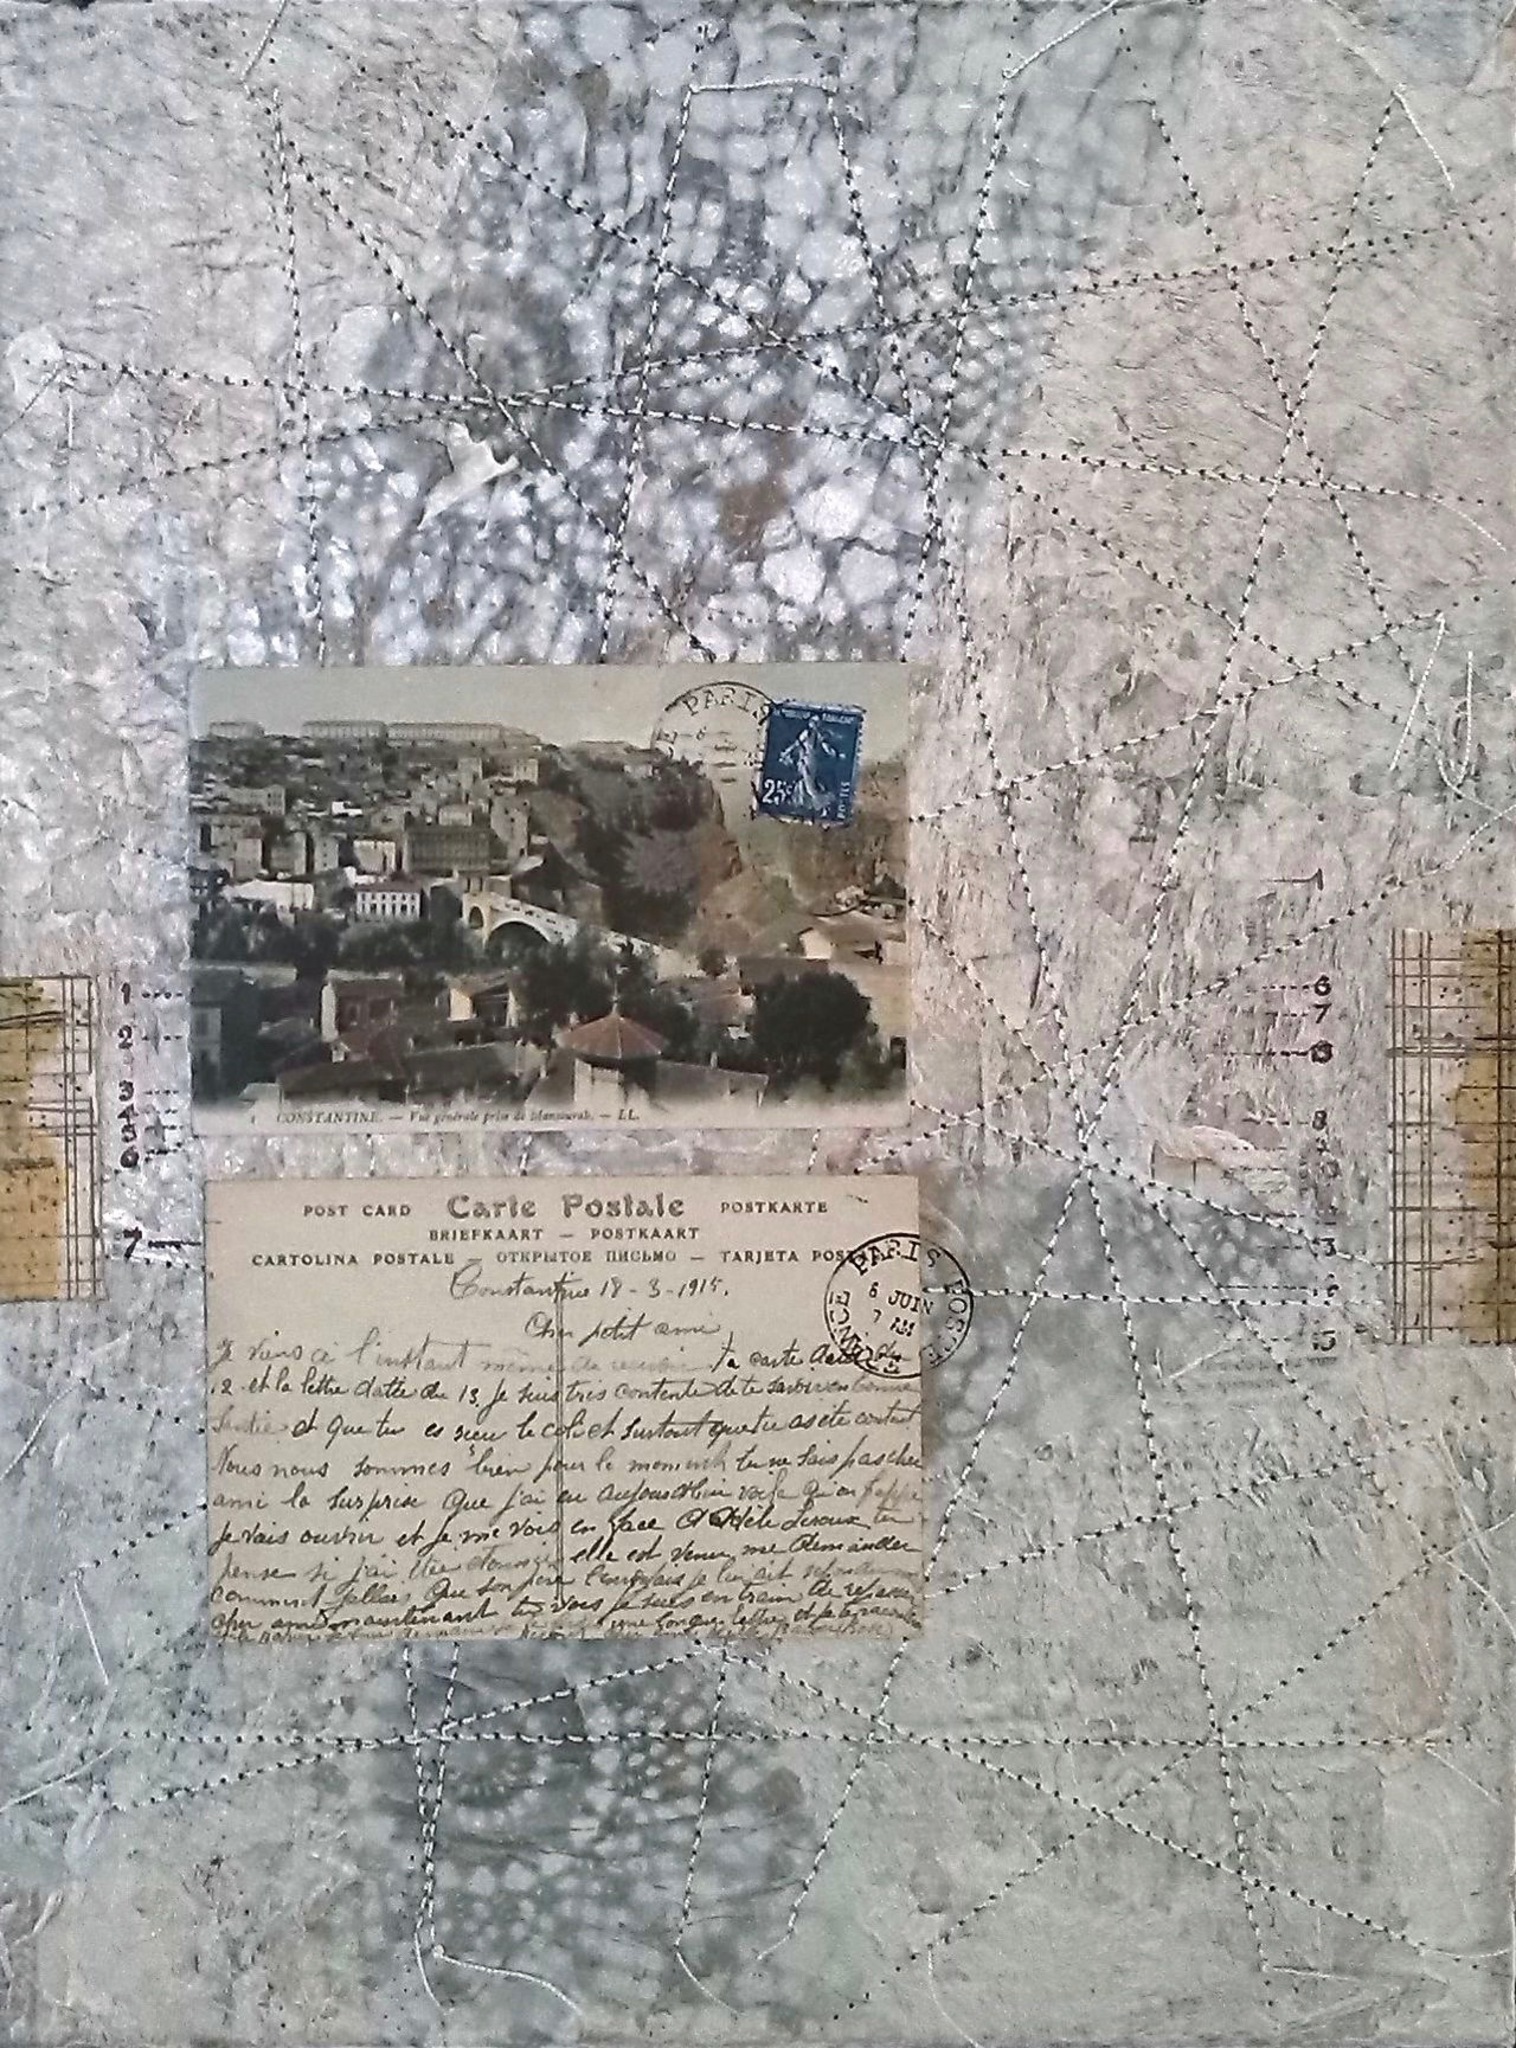 PARIS
25c
1 CONSTANTINE. — Vue générale prise de Mansourah. — LL.
1
2
3
4
5
6
7
6
7
8
8
3
5
POST CARD Carte Postale POSTKARTE
BRIEFKAART — POSTKAART
CARTOLINA POSTALE — ОТКРЫТОЕ ПИСЬМО — TARJETA POSTA
PARIS
6 JUIN
7
Constantine 18-3-1915.
Cher petit ami
Je viens à l'instant même de recevoir ta carte datée du
12 et la lettre datée du 13. Je suis très contente de te savoir en bonne
Santée et que tu es reçu le coli et surtout que tu as été content
Nous nous sommes bien pour le moment tu ne sais pas cher
ami la surprise que j'ai eu aujourd'hui voilà qi on frappe
je vais ouvrir et je me vois en face d'Adèle Leroux tu
pense si j'ai été étonnée elle est venue me demander
comment fallai que son père je lui ait
cher ami maintenant tu vois je suis en train de repasser
une longue lettre et je